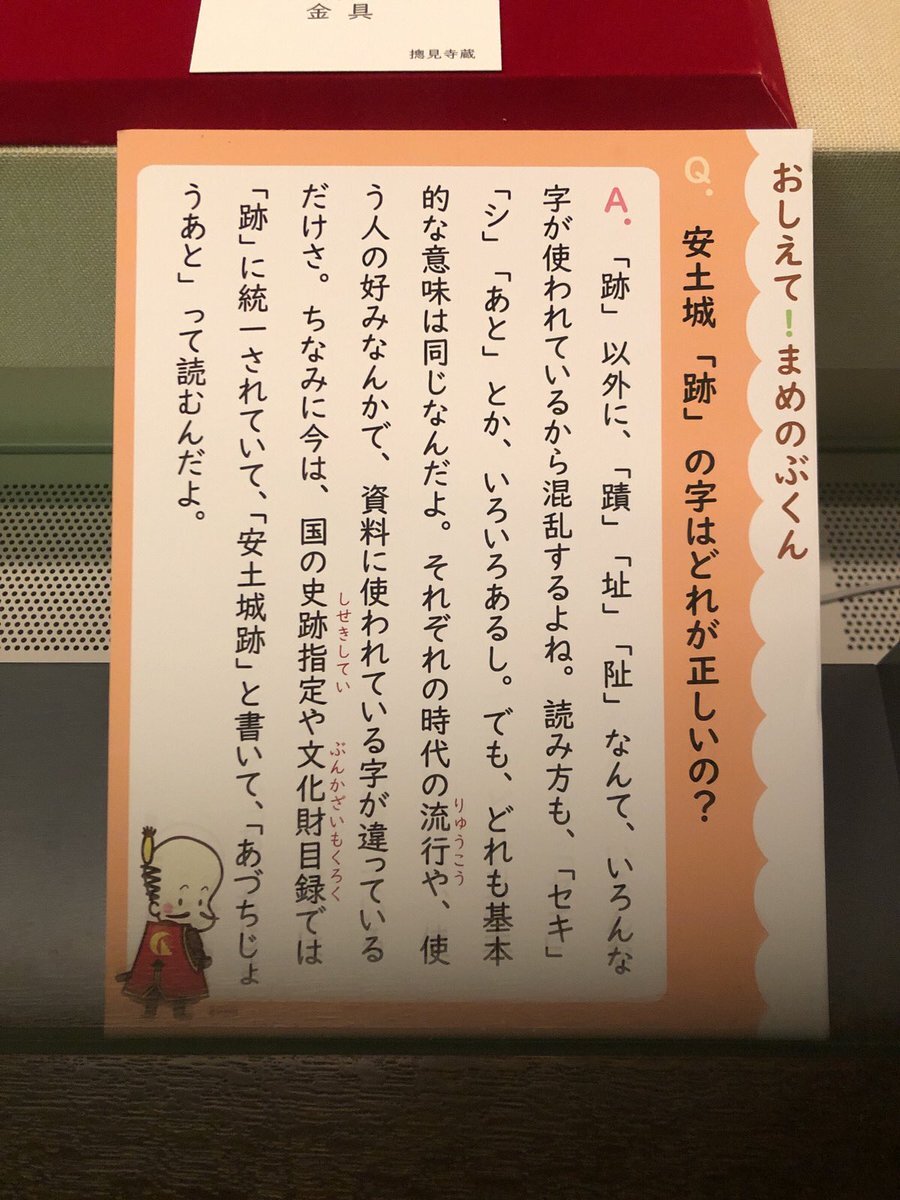 金具
摠見寺蔵
おしえて!まめのぶくん
Q. 安土城「跡」の字はどれが正しいの?
A. 「跡」以外に、「蹟」「址」「阯」なんて、いろんな
字が使われているから混乱するよね。読み方も、「セキ」
「シ」「あと」とか、いろいろあるし。でも、どれも基本
的な意味は同じなんだよ。それぞれの時代の流行や、使
りゅうこう
う人の好みなんかで、資料に使われている字が違っている
だけさ。ちなみに今は、国の史跡指定や文化財目録では
しせきしてい
ぶんかざいもくろく
「跡」に統一されていて、「安土城跡」と書いて、「あづちじょ
うあと」って読むんだよ。